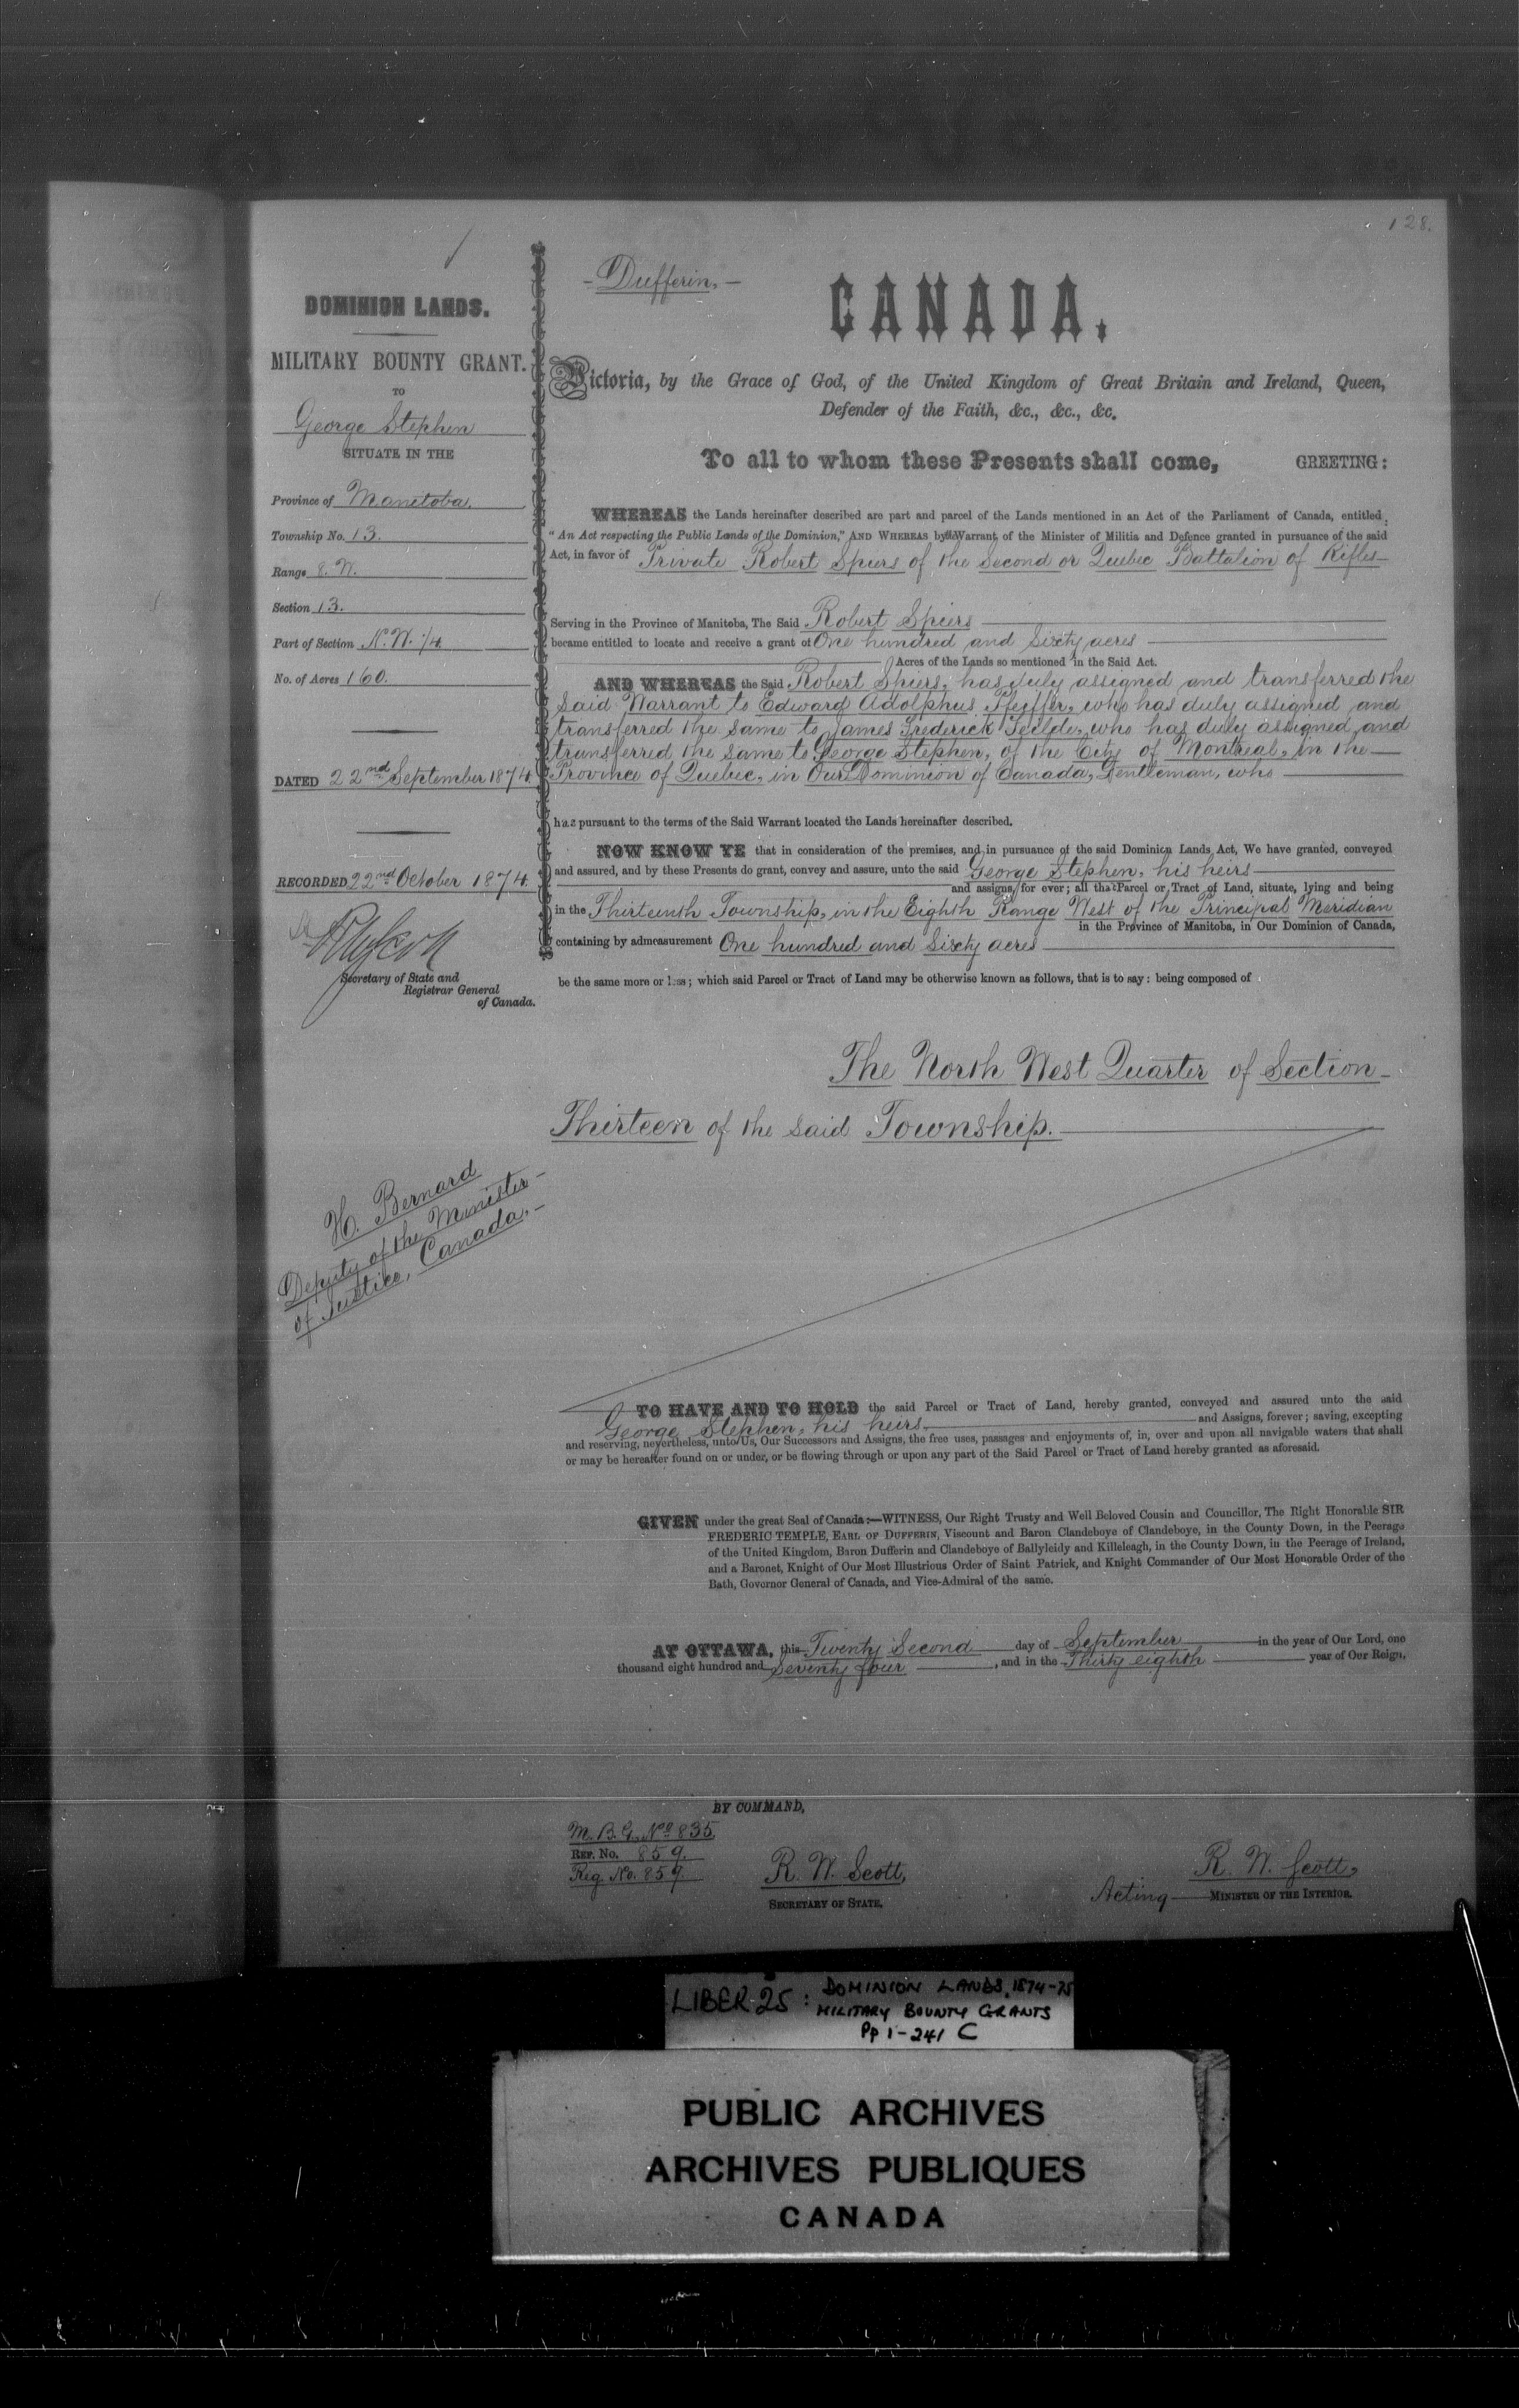 128.
DOMINION LANDS.
MILITARY BOUNTY GRANT.
TO
George Stephen
SITUATE IN THE
Province of Manitoba.
Township No. 13.
Range 8. W.
Section 13.
Part of Section N.W. 1/4
No. of Acres 160.
DATED 22nd September 1874
RECORDED 22nd October 1874.
Secretary of State and
Registrar General
of Canada.
H. Bernard
Deputy of the Minister
of Justice, Canada.
- Dufferin. -
CANADA.
Victoria, by the Grace of God, of the United Kingdom of Great Britain and Ireland, Queen,
Defender of the Faith, &c., &c., &c.
To all to whom these Presents shall come, GREETING:
WHEREAS the Lands hereinafter described are part and parcel of the Lands mentioned in an Act of the Parliament of Canada, entitled,
"An Act respecting the Public Lands of the Dominion," AND WHEREAS by Warrant of the Minister of Militia and Defence granted in pursuance of the said
Act, in favor of Private Robert Spiers of the Second or Quebec Battalion of Rifles
Serving in the Province of Manitoba, The Said Robert Spiers
became entitled to locate and receive a grant of One hundred and Sixty acres
Acres of the Lands so mentioned in the Said Act.
AND WHEREAS the Said Robert Spiers, has duly assigned and transferred the
Said Warrant to Edward Adolphus Pfeiffer, who has duly assigned and
transferred the same to James Frederick who has duly assigned and
transferred the same to George Stephen, of the City of Montreal, in the
Province of Quebec, in Our Dominion of Canada, Gentleman, who
has pursuant to the terms of the Said Warrant located the Lands hereinafter described.
NOW KNOW YE that in consideration of the premises, and in pursuance of the said Dominion Lands Act, We have granted, conveyed
and assured, and by these Presents do grant, convey and assure, unto the said George Stephen, his heirs
and assigns for ever; all that Parcel or Tract of Land, situate, lying and being
in the Thirteenth Township, in the Eighth Range West of the Principal Meridian
in the Province of Manitoba, in Our Dominion of Canada,
containing by admeasurement One hundred and Sixty acres
be the same more or less; which said Parcel or Tract of Land may be otherwise known as follows, that is to say: being composed of
The North West Quarter of Section
Thirteen of the said Township.
TO HAVE AND TO HOLD the said Parcel or Tract of Land, hereby granted, conveyed and assured unto the said
George Stephen, his heirs and Assigns, forever; saving, excepting
and reserving, nevertheless, unto Us, Our Successors and Assigns, the free uses, passages and enjoyments of, in, over and upon all navigable waters that shall
or may be hereafter found on or under, or be flowing through or upon any part of the Said Parcel or Tract of Land hereby granted as aforesaid.
GIVEN under the great Seal of Canada:—WITNESS, Our Right Trusty and Well Beloved Cousin and Councillor, The Right Honorable SIR
FREDERIC TEMPLE, EARL OF DUFFERIN, Viscount and Baron Clandeboye of Clandeboye, in the County Down, in the Peerage
of the United Kingdom, Baron Dufferin and Clandeboye of Ballyleidy and Killeleagh, in the County Down, in the Peerage of Ireland,
and a Baronet, Knight of Our Most Illustrious Order of Saint Patrick, and Knight Commander of Our Most Honorable Order of the
Bath, Governor General of Canada, and Vice-Admiral of the same.
AT OTTAWA, this Twenty Second day of September in the year of Our Lord, one
thousand eight hundred and Seventy four, and in the Thirty eighth year of Our Reign.
BY COMMAND,
M. B. G. No 835
REF. No. 859.
Reg. No. 859
R. W. Scott,
SECRETARY OF STATE.
R. W. Scott,
Acting MINISTER OF THE INTERIOR.
LIBER 25: DOMINION LANDS, 1874-75
MILITARY BOUNTY GRANTS
Pp 1-241 C
PUBLIC ARCHIVES
ARCHIVES PUBLIQUES
CANADA